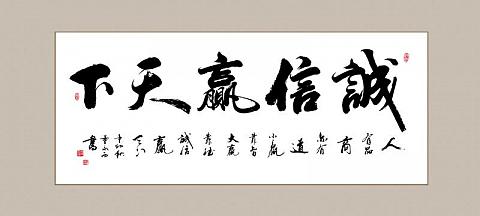 誠信贏天下
人有品商亦有道小贏靠智大贏靠德誠信贏天下 書